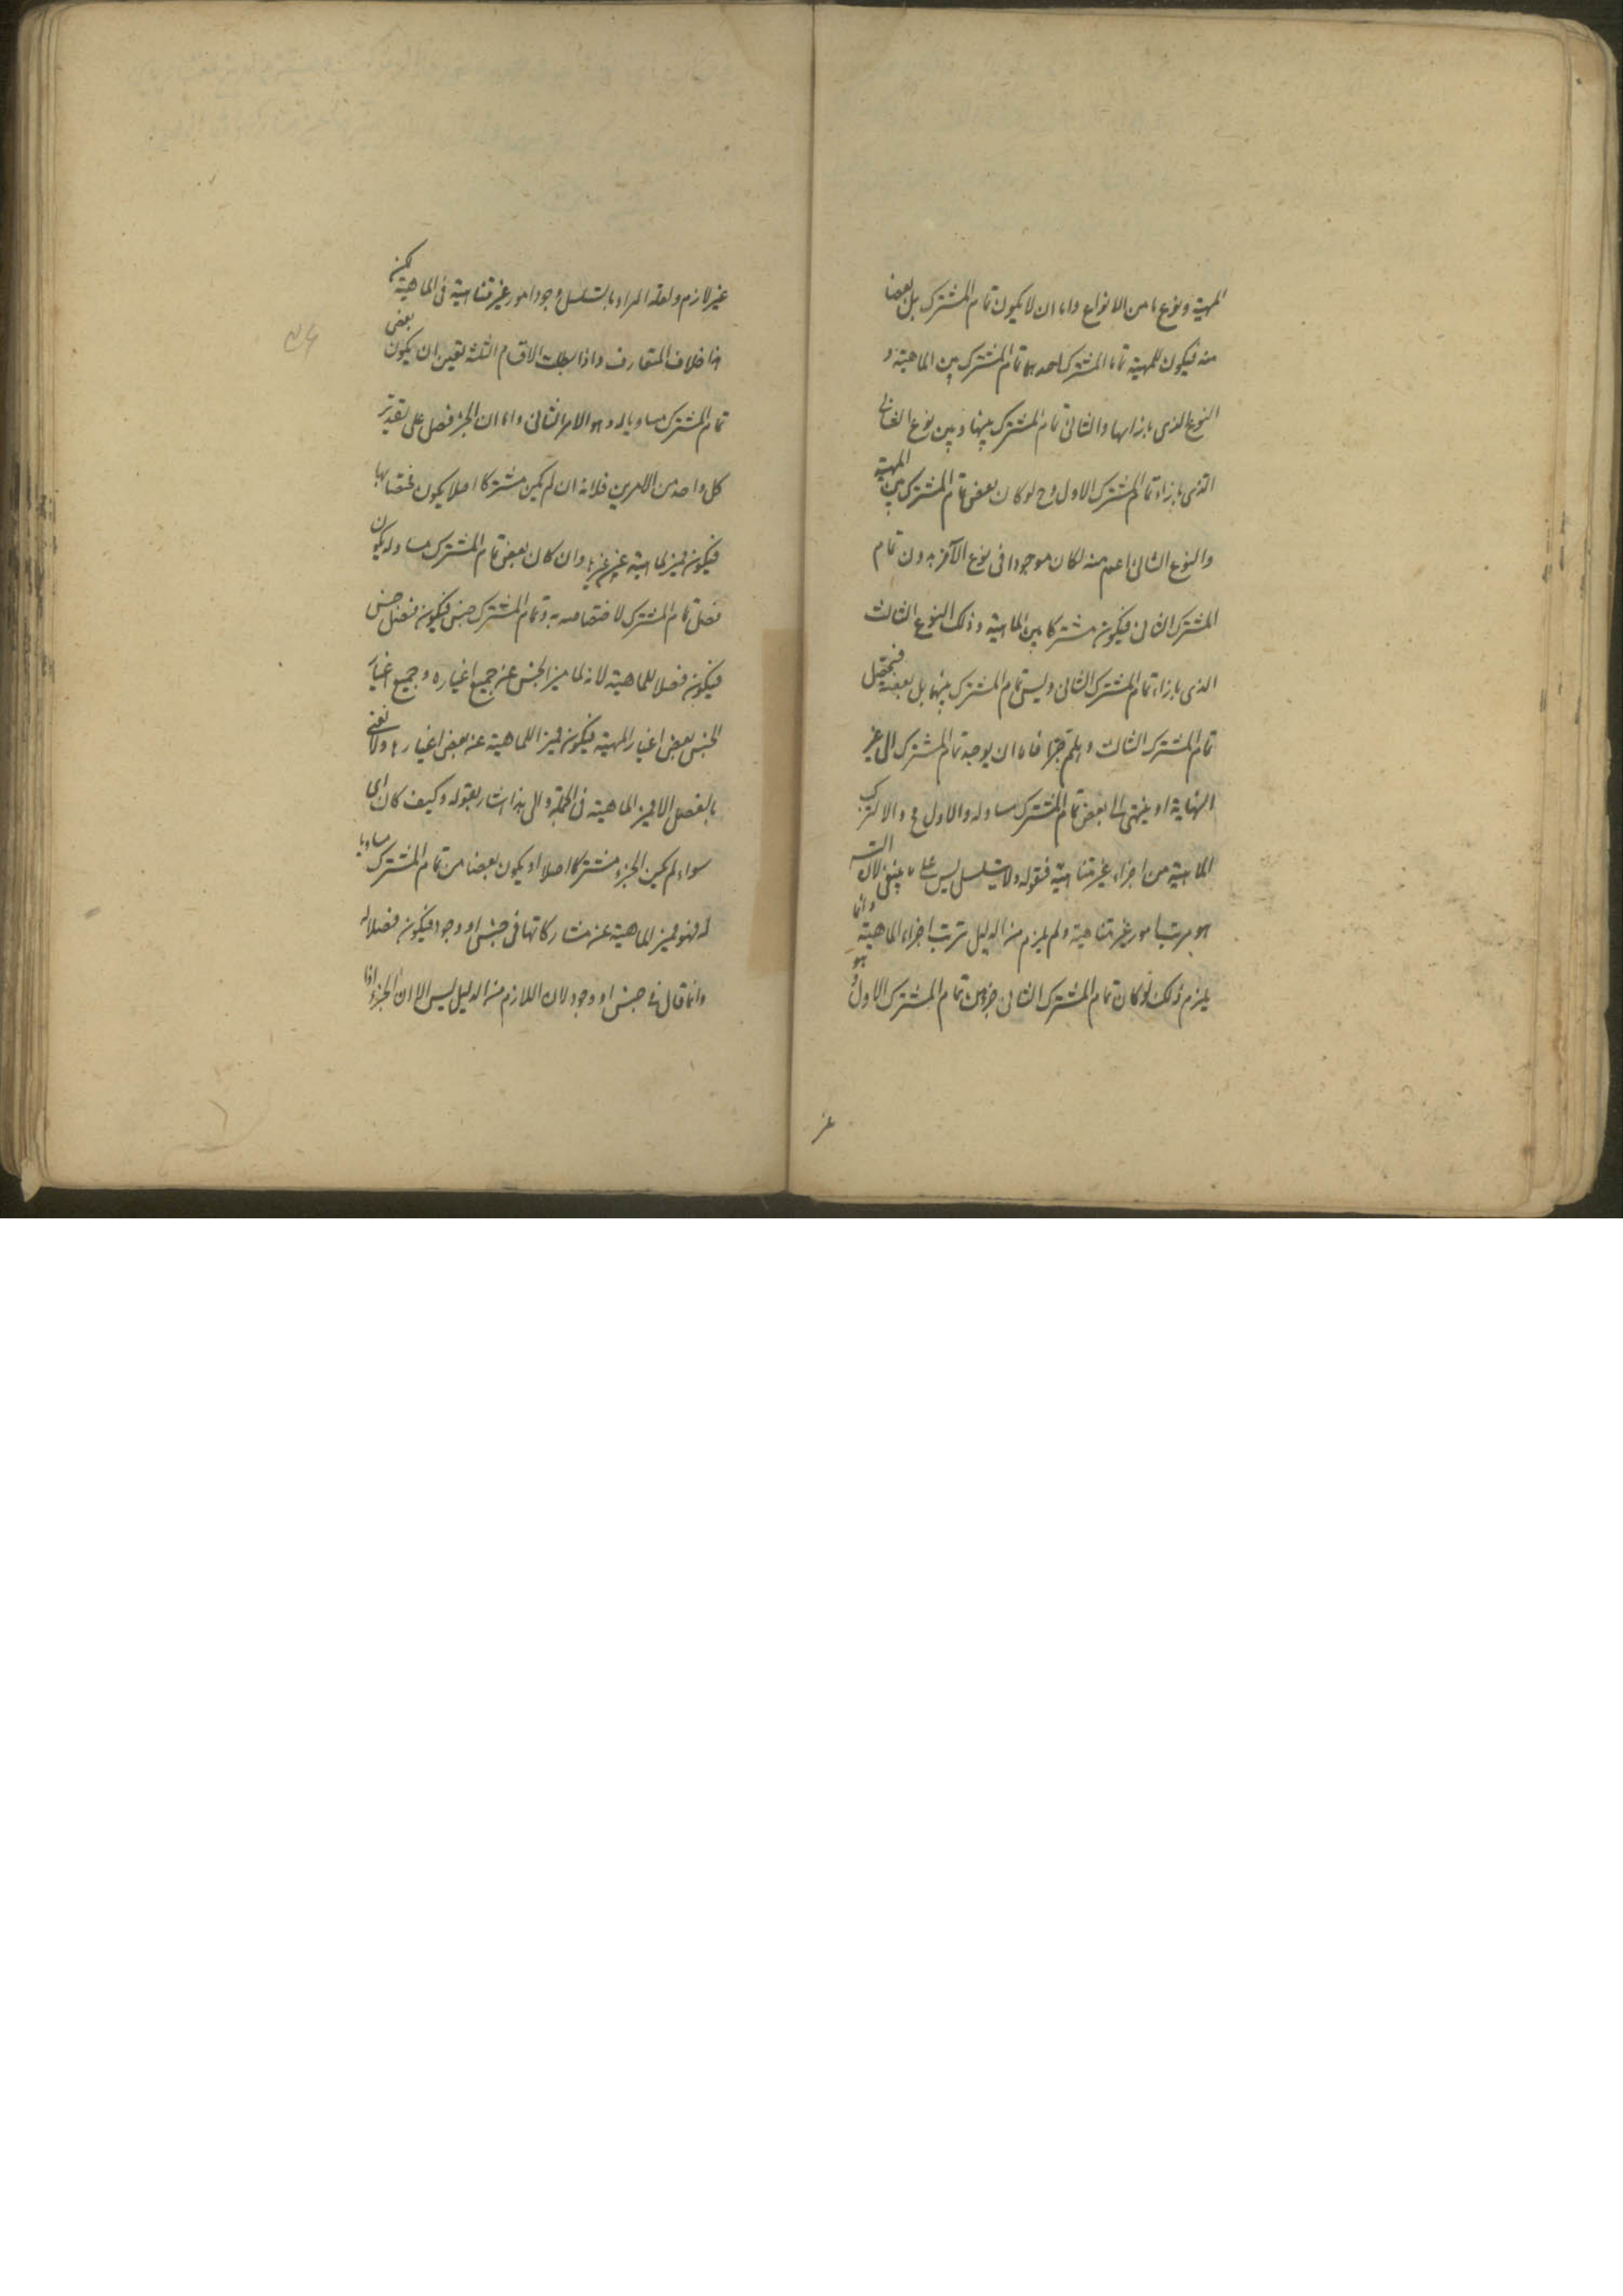 المهية ونوع ما من الانواع واما ان لا يكون تمام المشترك بل بعضا
منه فيكون للمهية تماما المشترك احدهما تمام المشترك بين الماهية و
النوع الذى بازائها والثانى تمام المشترك بينها وبين نوع الثانى
الذى بازاء تمام المشترك الاول وح لو كان بعض تمام المشترك بين المهية
والنوع الثانى اعم منه لكان موجودا فى نوع الآخر بدون تمام
المشترك الثانى فيكون مشتركا بين الماهية وذلك النوع الثالث
الذى بازاء تمام المشترك الثانى وليس تمام المشترك بينهما بل بعضه فيحصل
تمام المشترك الثالث وهلم جرا فاما ان يوجد تمام المشترك الى غير
النهاية او ينتهى الى بعض تمام المشترك مساو له والاول مح والا لتركب
الماهية من اجزاء غير متناهية فقوله ولا يتسلسل ليس على ما ينبغى لان التسلسل
هو ترتب امور غير متناهية ولم يلزم من الدليل ترتب اجزاء الماهية وانما
يلزم ذلك لو كان تمام المشترك الثانى جزء من تمام المشترك الاول وهو
غير
غير لازم ولعله اراد بالتسلسل وجود امور غير متناهية فى الماهية لكن
هنا خلاف المتعارف واذا بطلت الاقسام الثلثة تعين ان يكون بعض
تمام المشترك مساويا له وهو الامر الثانى واما ان الجزء فصل على تقدير
كل واحد من الامرين فلانه ان لم يكن مشتركا اصلا يكون مختصا بها
فيكون مميزا لماهية عن غيرها وان كان بعض تمام المشترك مساو له يكون
فصل تمام المشترك لاختصاصه به وتمام المشترك جنس فيكون فصل جنس
فيكون فصلا للماهية لانه لما ميز الجنس عن جميع اغياره وجميع اغيار
الجنس بعض اغيار المهية فيكون مميزا للماهية عن بعض اغيارها ولا نعنى
بالفصل الا مميز الماهية فى الجملة والى هذا اشار بقوله وكيف كان اى
سواء لم يكن الجزء مشتركا اصلا او يكون بعضا من تمام المشترك مساويا
له فهو مميز الماهية عن مشاركاتها فى جنس او وجود فيكون فصلا له
وانما قال فى جنس او وجود لان اللازم من الدليل ليس الا ان الجزء اذا